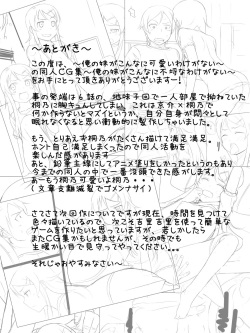 ～あとがき～
この度は、～俺の妹がこんなに可愛いわけがない～
の同人CG集～俺の妹がこんなに不埒なわけがない～
をお手にとって頂きありがとうございます～!
事の発端は6話の、地味子回で一人部屋で拗ねていた
桐乃に胸キュンしてしまい、これは京介×桐乃で
何か作らないとマズイというか、自分自身が悶々として
眠れなくなると思い衝動的に製作しちゃいました。
もう、とりあえず桐乃がたくさん描けて満足満足。
ホント自己満足しまくったので同人活動を
楽しんだ感があります…
あと、鉛筆主線にしてアニメ塗りをしかったというのもあり
今までの同人の中で一番没頭できた感がします。
あーもう桐乃可愛いよ桐乃・・・
(文章支離滅裂でゴメンナサイ)
さてさて次回作についてですが現在、時間を見つけて
色々描いているので、次こそ吉里吉里を使って簡単な
ゲームを作りたいと思っていますが、もしかしたら
またCG集かもしれませんが、その時でも
生暖かい目で見守ってやってください・・・
それじゃおやすみなさい～